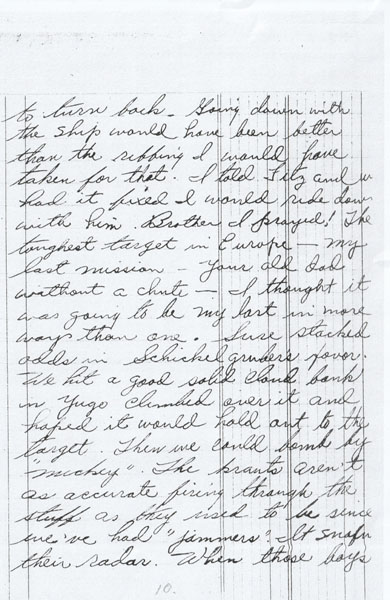 to turn back - Going down with
the ship would have been better
than the ribbing I would have
taken for that. I told Fitz and w
had it fixed I would ride down
with him. Brother I prayed! The
toughest target in Europe - my
last mission - Your old dad
without a chute - I thought it
was going to be my last in more
ways than one. Sure stacked
odds in Schickelgrubers favor.
We hit a good solid cloud bank
in Yugo climbed over it and
hoped it would hold out to the
target. Then we could bomb by
"mickey". The krauts aren't
as accurate firing through the
stuff as they used to be since
we've had "jammers". It snafu
their radar. When those boys
10.